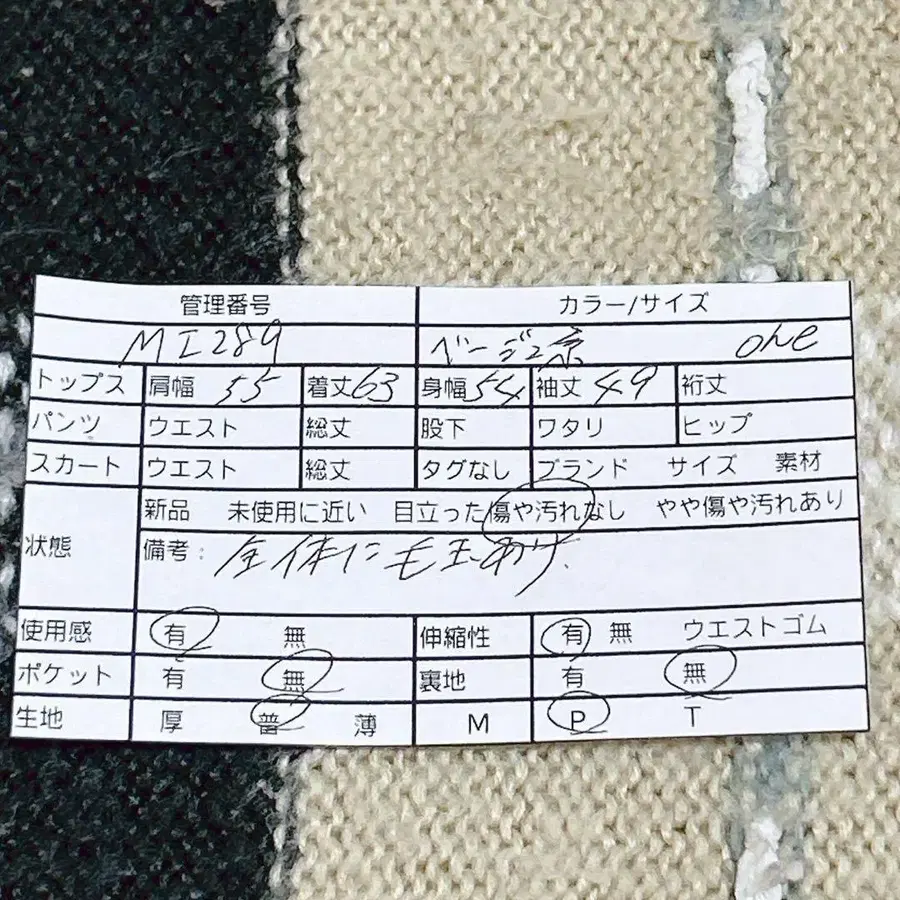 管理番号 カラー/サイズ
MI289 ベージュ系 one
トップス 肩幅 55 着丈 63 身幅 54 袖丈 49 裄丈
パンツ ウエスト 総丈 股下 ワタリ ヒップ
スカート ウエスト 総丈 タグなし ブランド サイズ 素材
状態 新品 未使用に近い 目立った傷や汚れなし やや傷や汚れあり
備考: 全体に毛玉あり.
使用感 有 無 伸縮性 有 無 ウエストゴム
ポケット 有 無 裏地 有 無
生地 厚 普 薄 M P T